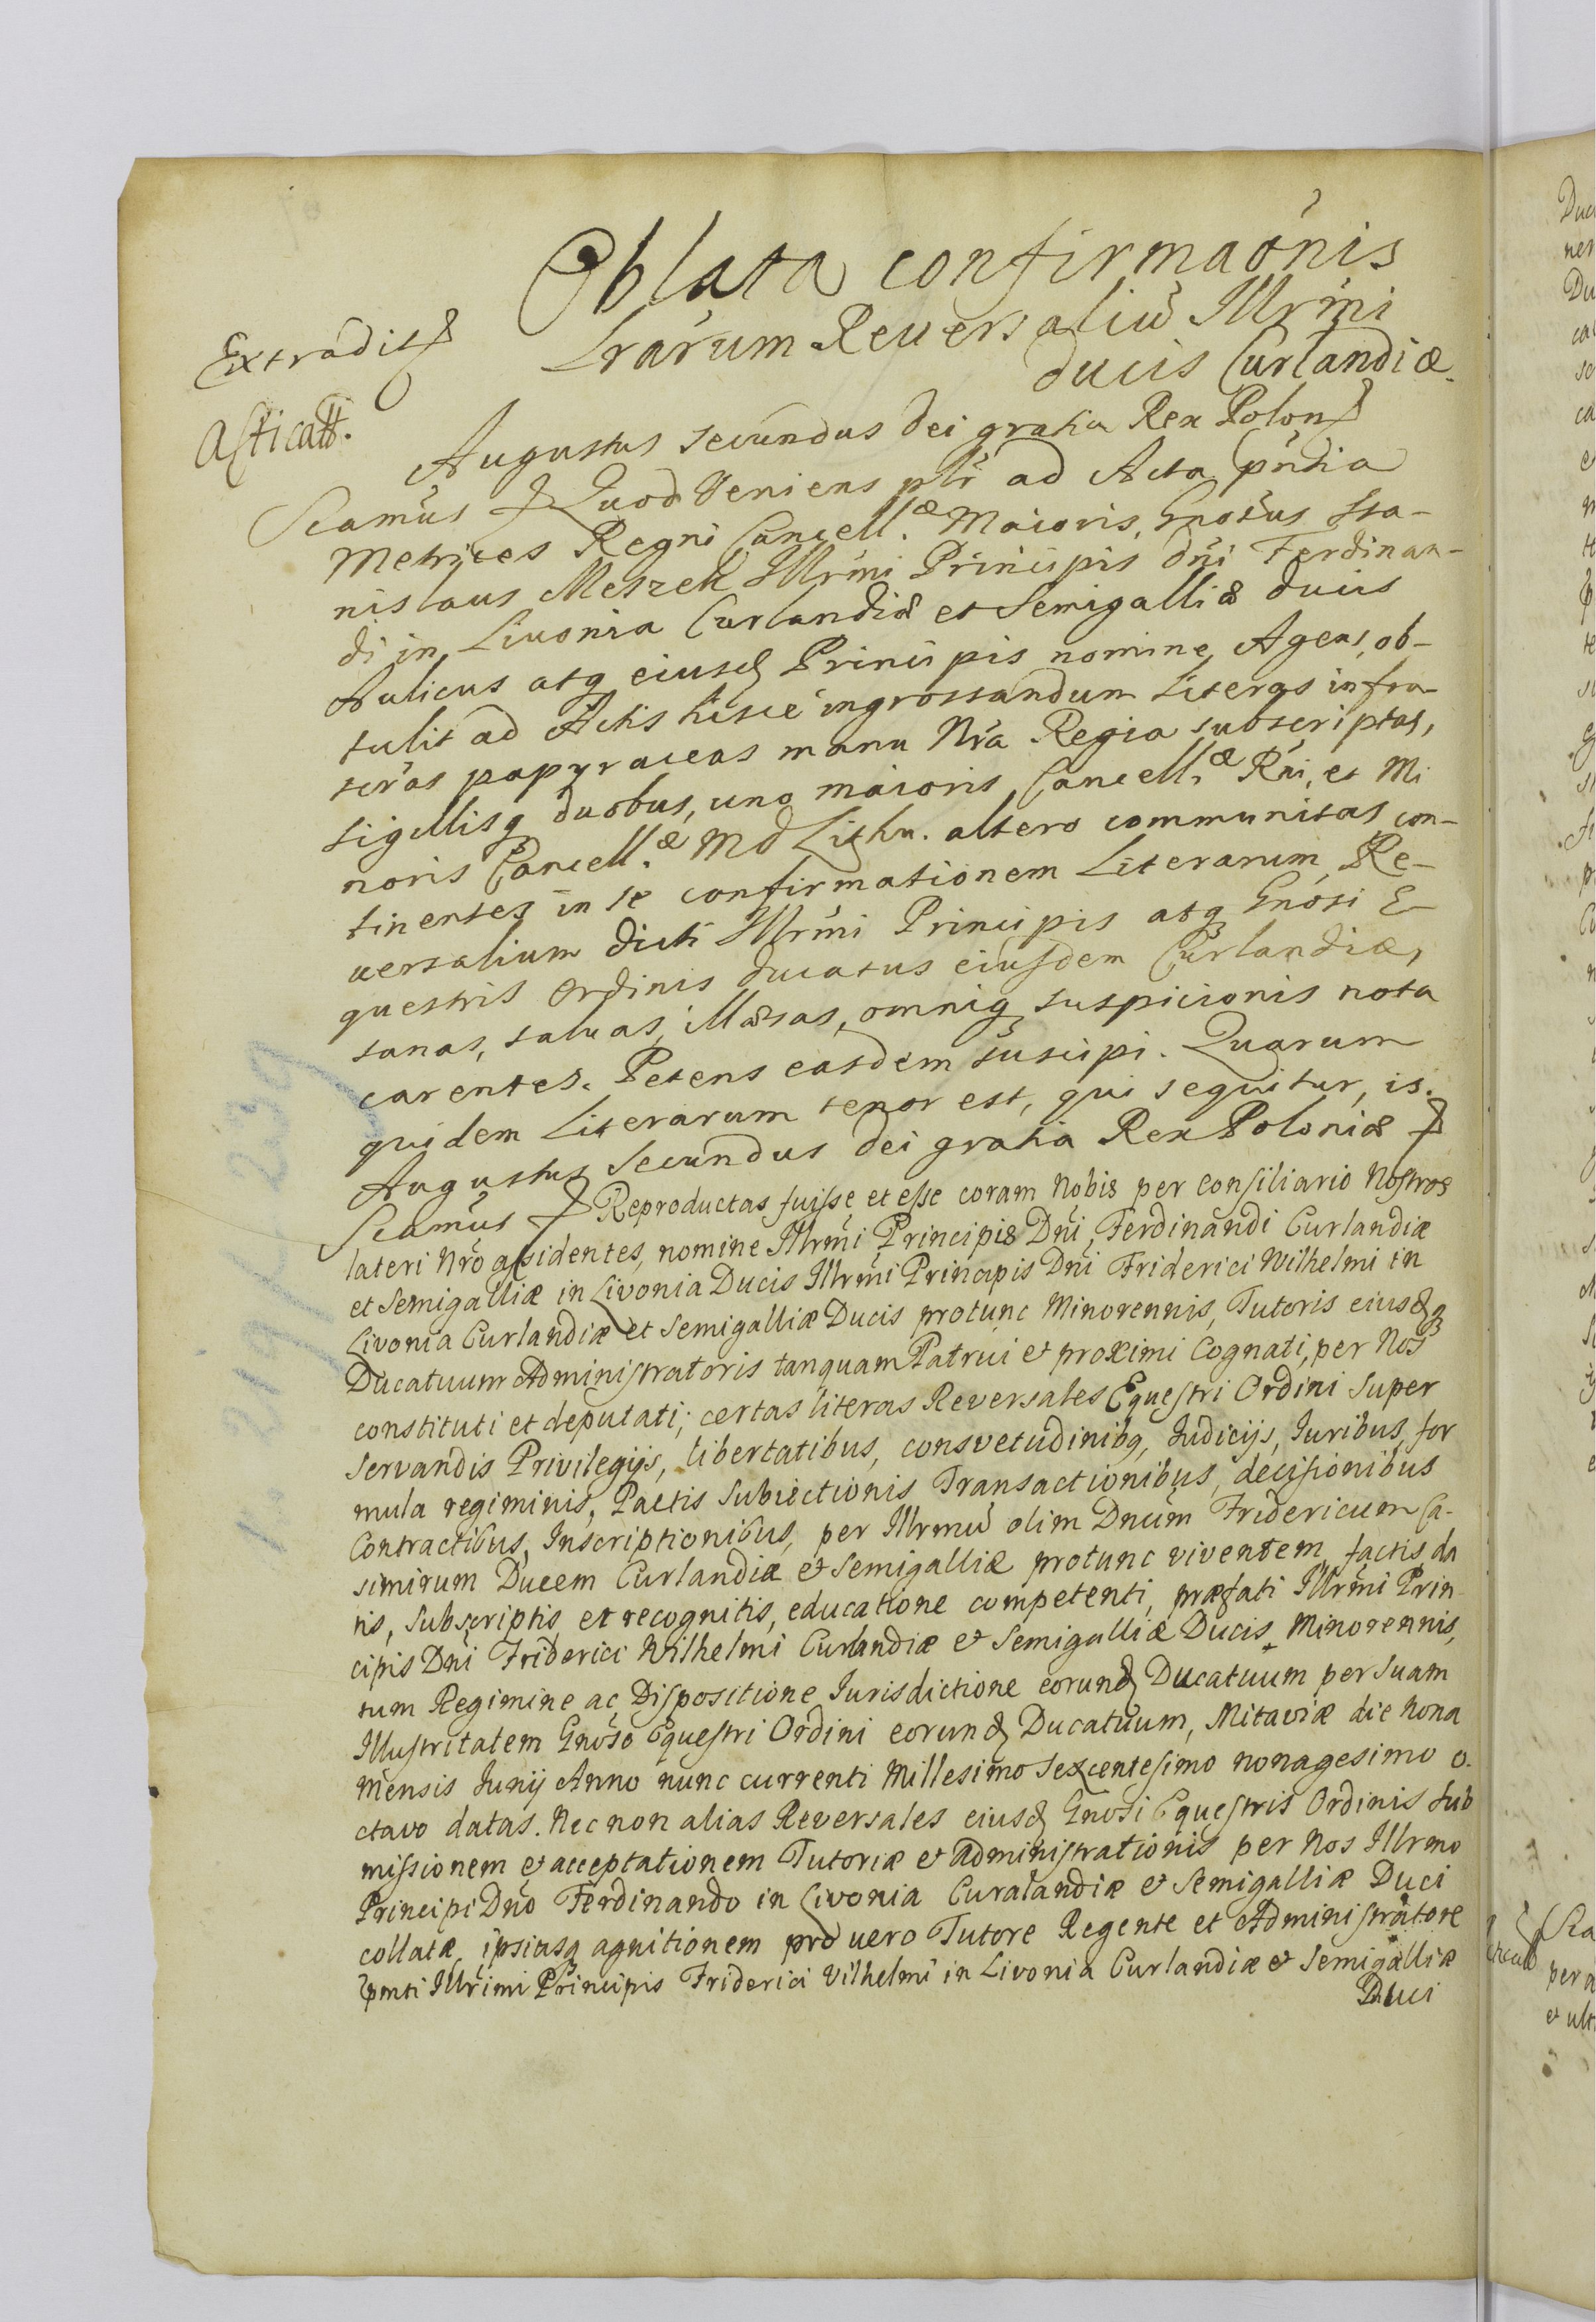 Oblata confirmaónis
Lrárum Reversaliū Illrmi
ducis Curlandiæ.
Extradit
Asticatt.
Augustus secundus dei gratia Rex Polon
Sčamus Quod veniens pltr ad Acta pńtia
Metrices Regni Cancell.æ Maioris, Gnosus Sta-
nislaus Meszek Illrmi Principis dńi Ferdinan-
di in Livonia Curlandiæ et Semigalliæ ducis
Aulicus atq eiusd Principis nomine Agens, ob-
tulit ad Actis hisce ingrossandum Literas infra
scrás papyraceas manu Nrá Regia subscriptas,
sigillisq duobus, uno maioris Cancell.æ Rńi, et Mi
noris Cancell.æ M D Lithu. altero communitas con-
tinentes in se confirmationem Literarum Re-
versalium dicti Illrmi Principis atq Gnósi E-
questris Ordinis ducatus eiusdem Curlandiæ,
sanas, salvas, illæsas, omniq suspicionis nota
carentes. Petens easdem suscipi. Quarum
quidem Literarum tenor est, qui sequitur, is.
Augustus Secundus dei gratia Rex Poloniæ
Sčamus Reproductas fuisse et esse coram Nobis per consiliario Nostros
lateri Nró assidentes, nomine Illrmi Principis Dńi, Ferdinandi Curlandiæ
et Semigalliæ in Livonia Ducis Illrmi Principis Dńi Friderici Wilhelmi in
Livonia Curlandiæ et Semigalliæ Ducis protunc Minorennis, Tutoris eiusdq
Ducatuum Administratoris tanquam Patrui et proximi Cognati, per Nos
constituti et deputati; certas literas Reversales Equestri Ordini super
servandis Privilegijs, libertatibus, consvetudinibq, Iudicijs, Iuribus, for
mula regiminis, Pactis Subiectionis Transactionibus, decisionibus
Contractibus, Inscriptionibus, per Illrmū olim Dnūm Fridericum Ca-
simirum Ducem Curlandiæ et Semigalliæ protunc viventem, factis, da
tis, subscriptis et recognitis, educatione competenti, præfati Illrmi Prin
cipis Dńi Friderici Wilhelmi Curlandiæ et Semigalliæ Ducis Minorennis,
tum Regimine ac Dispositione Iurisdictione eorund Ducatuum per Suam
Illustritatem Gnoso Equestri Ordini eorund Ducatuum, Mitaviæ die nona
mensis Iunij Anno nunc currenti Millesimo Sexcentesimo nonagesimo o-
ctavo datas. Nec non alias Reversales eiusd Gnosi Equestris Ordinis sub
missionem et acceptationem Tutoriæ et Administrationis per Nos Illrmo
Principi Dnó Ferdinando in Livonia Curalandiæ et Semigalliæ Duci
collatæ, ipsiusq agnitionem pro vero Tutore Regente et Administratore
pmti Illrimi Principis Friderici Vilhelmi in Livonia Curlandiæ et Semigalliæ
Duci